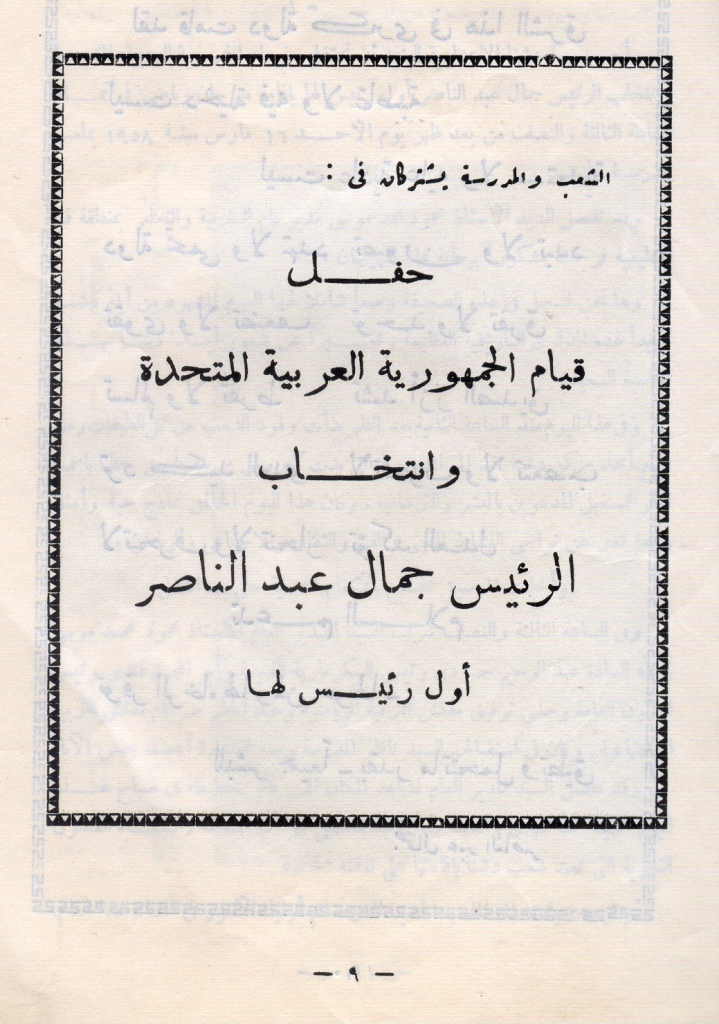 الشعب والمدرسة يشتركان فى :
حفـــــل
قيام الجمهورية العربية المتحدة
وانتخـــــاب
الرئيس جمال عبد الناصر
أول رئيـــس لهـا
— ٩ —